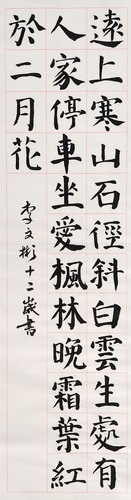 遠上寒山石徑斜白雲生處有
人家停車坐愛楓林晚霜葉紅
於二月花
李文彬十二歲書